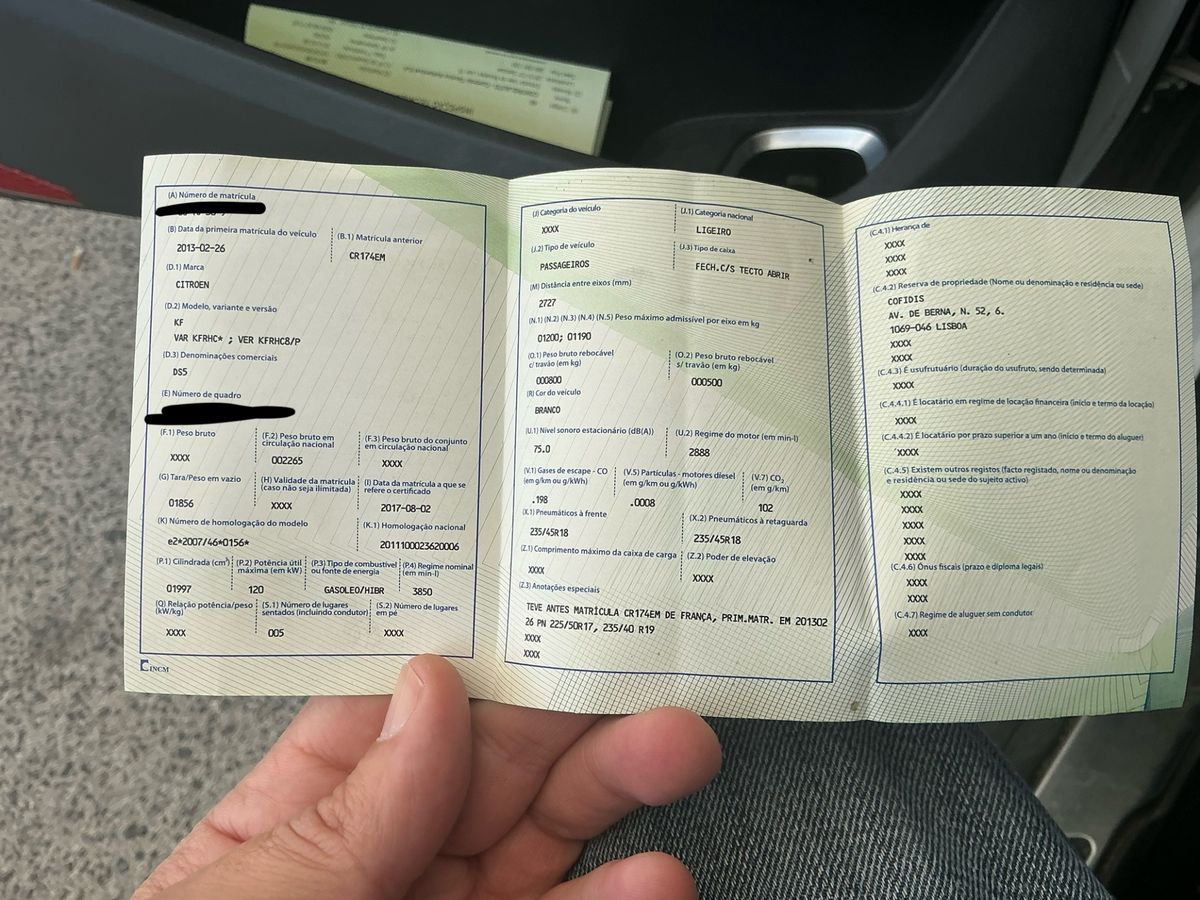 (A) Número de matrícula
(B) Data da primeira matrícula do veículo
2013-02-26
(B.1) Matrícula anterior
CR174EM
(D.1) Marca
CITROEN
(D.2) Modelo, variante e versão
KF
VAR KFRHC* ; VER KFRHC8/P
(D.3) Denominações comerciais
DS5
(E) Número de quadro
(F.1) Peso bruto
XXXX
(F.2) Peso bruto em
circulação nacional
002265
(F.3) Peso bruto do conjunto
em circulação nacional
XXXX
(G) Tara/Peso em vazio
01856
(H) Validade da matrícula
(caso não seja ilimitada)
XXXX
(I) Data da matrícula a que se
refere o certificado
2017-08-02
(K) Número de homologação do modelo
e2*2007/46*0156*
(K.1) Homologação nacional
2011100023620006
(P.1) Cilindrada (cm³)
01997
(P.2) Potência útil
máxima (em kW)
120
(P.3) Tipo de combustível
ou fonte de energia
GASOLEO/HIBR
(P.4) Regime nominal
(em min-l)
3850
(Q) Relação potência/peso
(kW/kg)
XXXX
(S.1) Número de lugares
sentados (incluindo condutor)
005
(S.2) Número de lugares
em pé
XXXX
INCM
(J) Categoria do veículo
XXXX
(J.1) Categoria nacional
LIGEIRO
(J.2) Tipo de veículo
PASSAGEIROS
(J.3) Tipo de caixa
FECH.C/S TECTO ABRIR
(M) Distância entre eixos (mm)
2727
(N.1) (N.2) (N.3) (N.4) (N.5) Peso máximo admissível por eixo em kg
01200; 01190
(O.1) Peso bruto rebocável
c/ travão (em kg)
000800
(O.2) Peso bruto rebocável
s/ travão (em kg)
000500
(R) Cor do veículo
BRANCO
(U.1) Nível sonoro estacionário (dB(A))
75.0
(U.2) Regime do motor (em min-l)
2888
(V.1) Gases de escape - CO
(em g/km ou g/kWh)
.198
(V.5) Partículas - motores diesel
(em g/km ou g/kWh)
.0008
(V.7) CO₂
(em g/km)
102
(X.1) Pneumáticos à frente
235/45R18
(X.2) Pneumáticos à retaguarda
235/45R18
(Z.1) Comprimento máximo da caixa de carga
XXXX
(Z.2) Poder de elevação
XXXX
(Z.3) Anotações especiais
TEVE ANTES MATRÍCULA CR174EM DE FRANÇA, PRIM.MATR. EM 201302
26 PN 225/50R17, 235/40 R19
XXXX
XXXX
(C.4.1) Herança de
XXXX
XXXX
XXXX
(C.4.2) Reserva de propriedade (Nome ou denominação e residência ou sede)
COFIDIS
AV. DE BERNA, N. 52, 6.
1069-046 LISBOA
XXXX
XXXX
(C.4.3) É usufrutuário (duração do usufruto, sendo determinada)
XXXX
(C.4.4.1) É locatário em regime de locação financeira (início e termo da locação)
XXXX
(C.4.4.2) É locatário por prazo superior a um ano (início e termo do aluguer)
XXXX
(C.4.5) Existem outros registos (facto registado, nome ou denominação
e residência ou sede do sujeito activo)
XXXX
XXXX
XXXX
XXXX
XXXX
(C.4.6) Ónus fiscais (prazo e diploma legais)
XXXX
XXXX
(C.4.7) Regime de aluguer sem condutor
XXXX